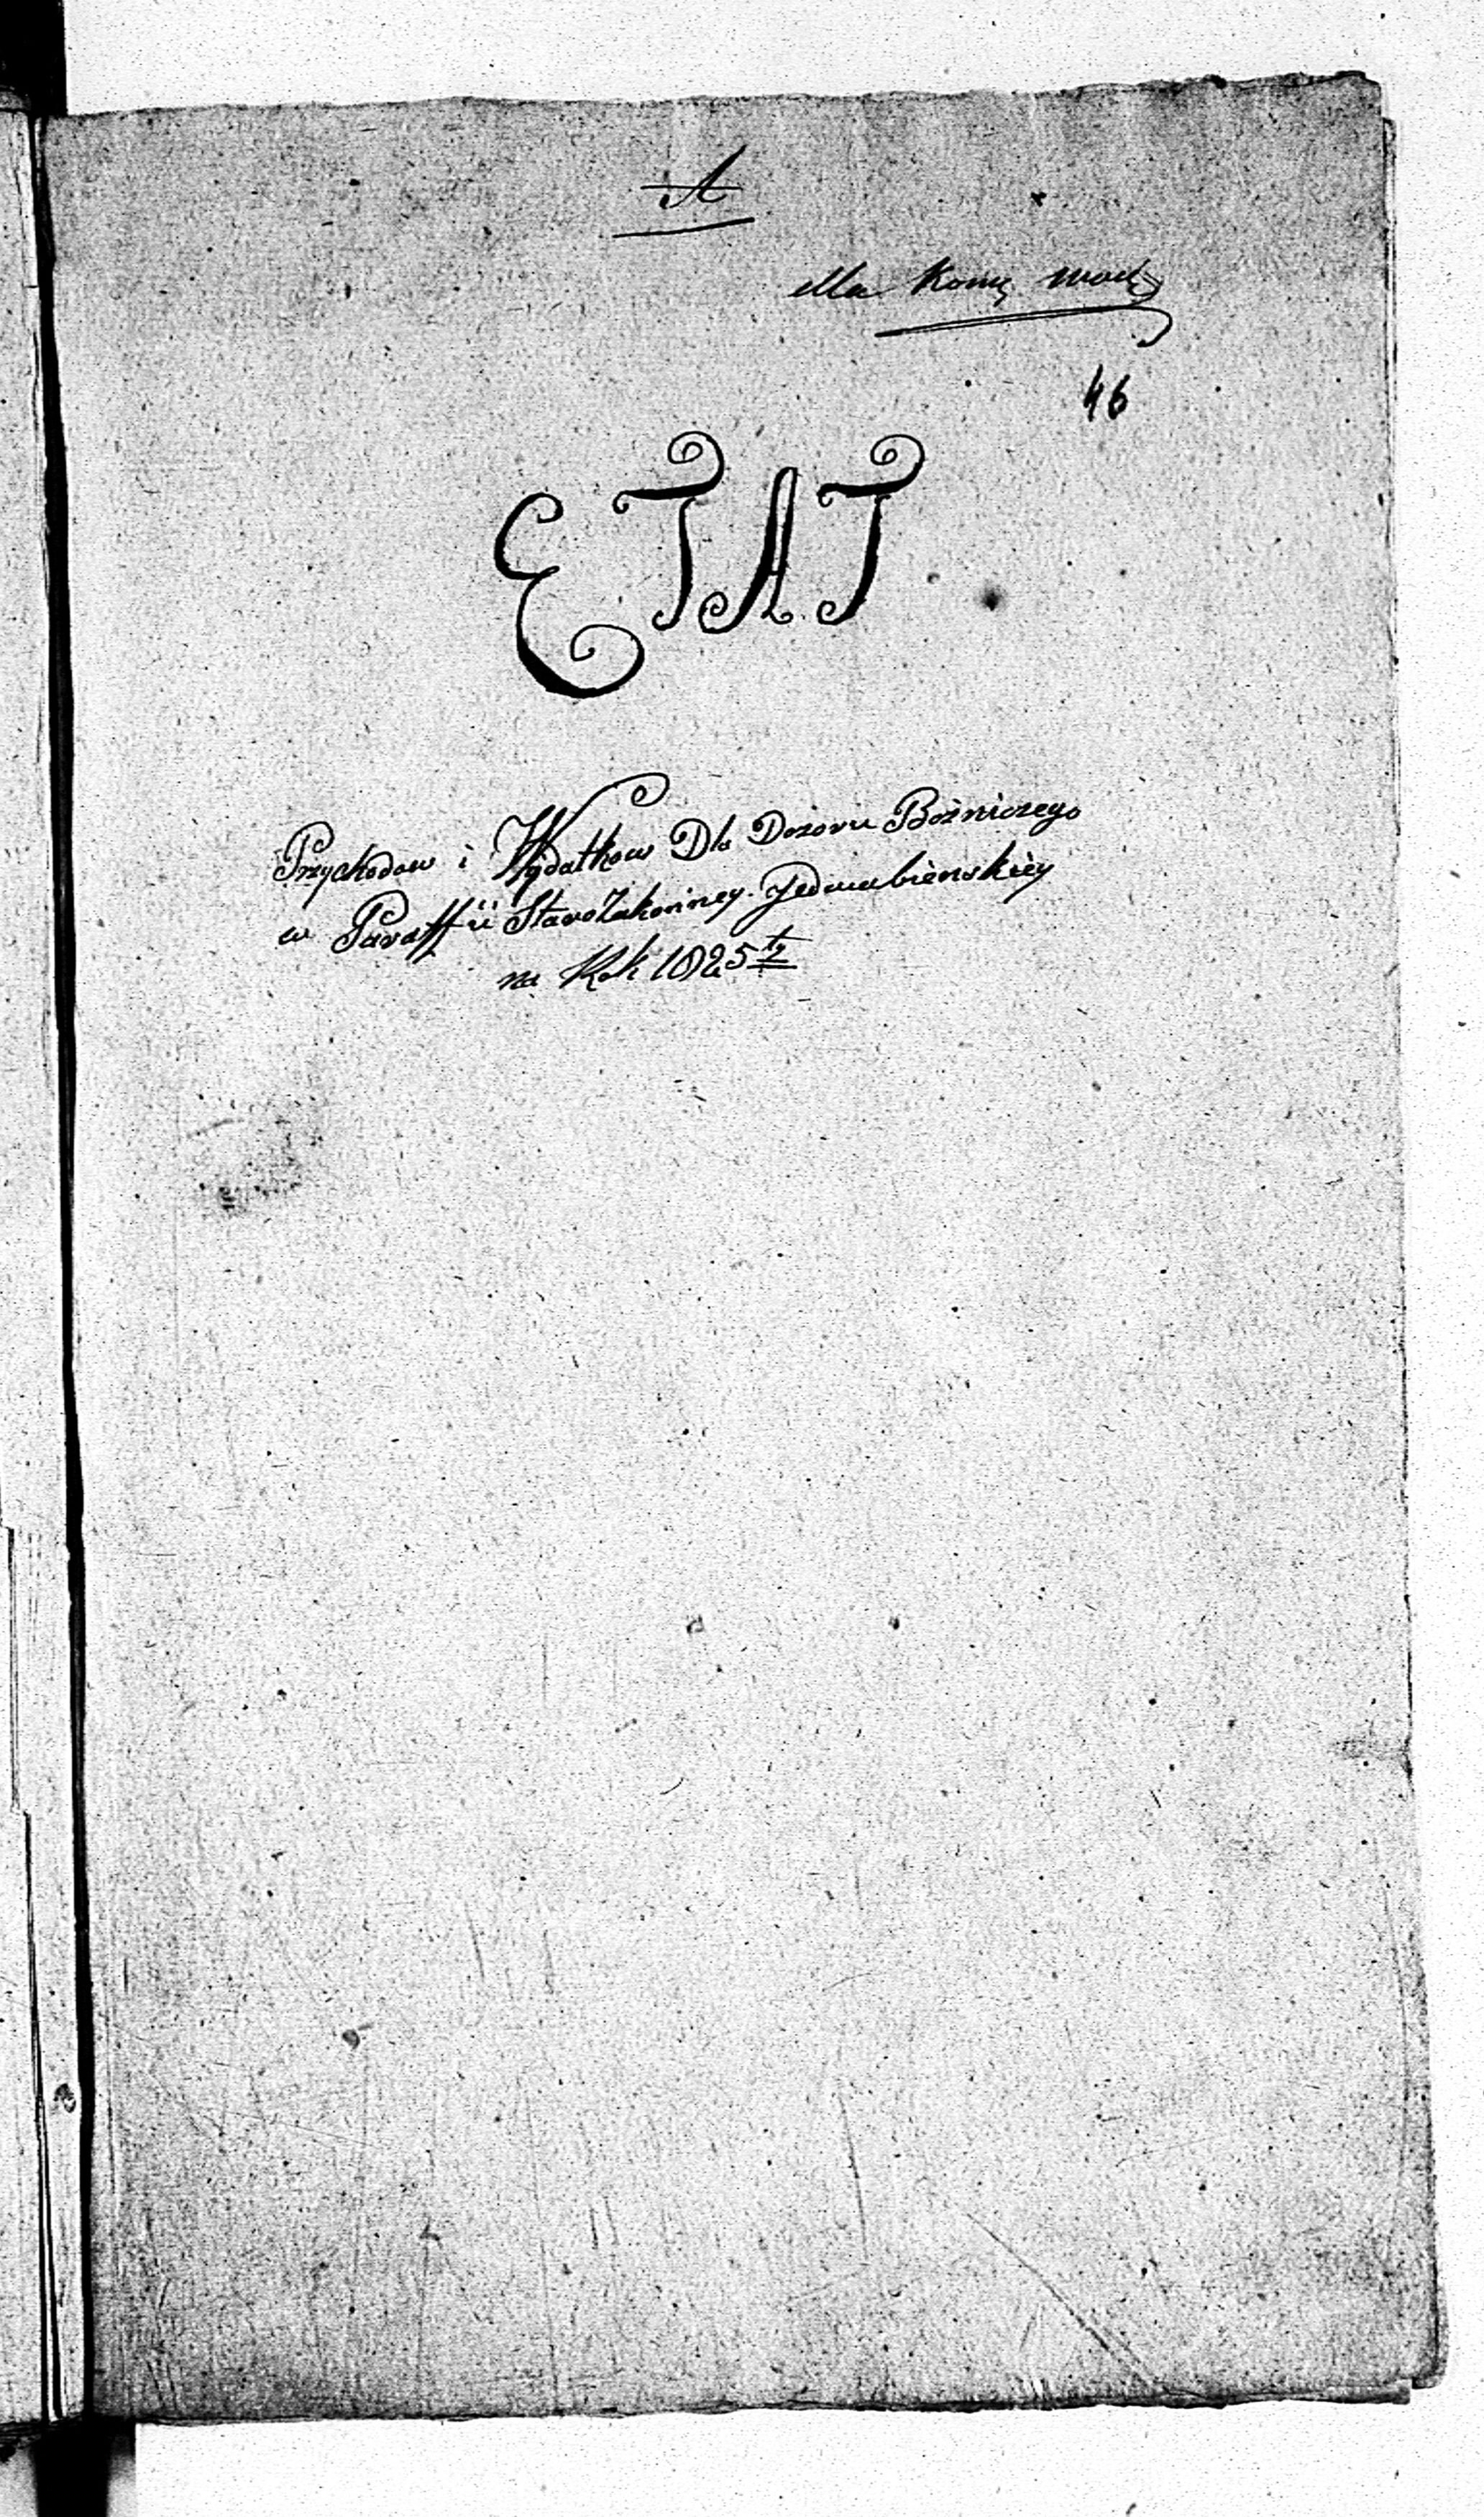 A
dla Komię
46
ETAT
Przychodow i Wydatkow Dla Dozoru Bożniczego
w Paraffii StaroZakonney Jedwabienskiey
na Rok 1825ty